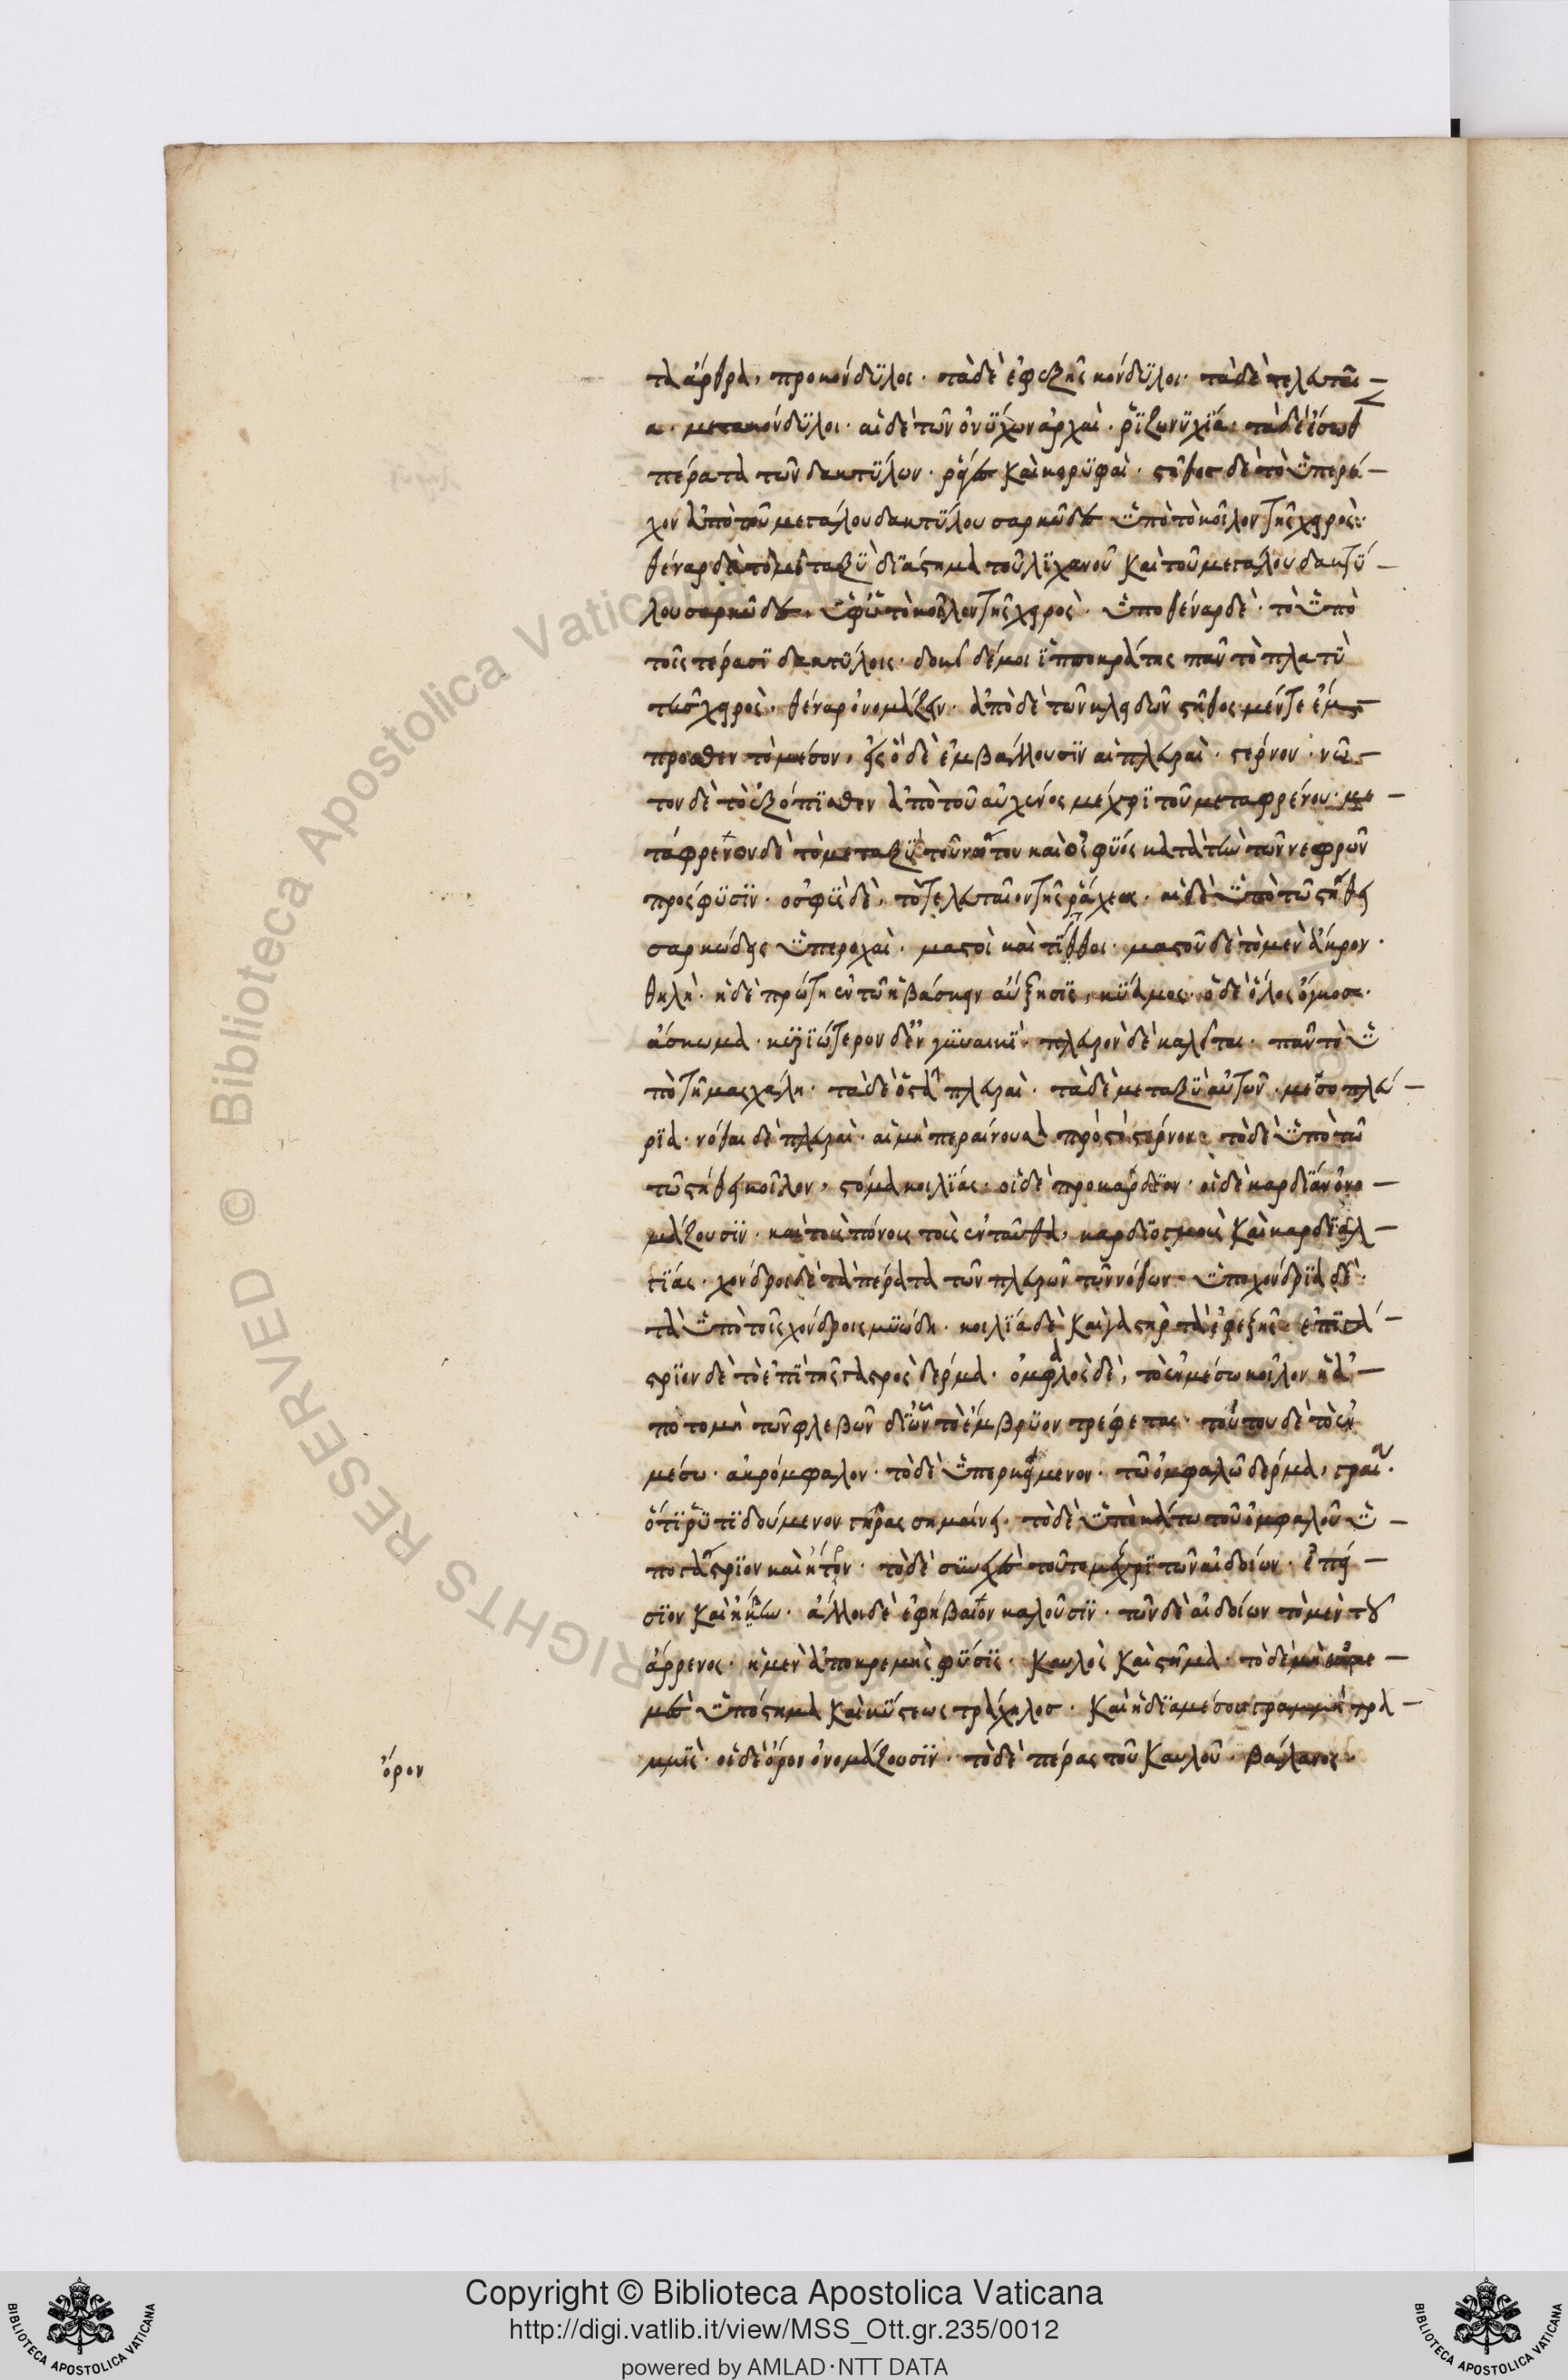 τὰ ἄρθρα, προκόνδϋλοι· τὰ δὲ ἐφεξῆς κόνδϋλοι· τὰ δὲ τελευταῖ-
α· μετακόνδϋλοι· αἱ δὲ τῶν ὀνϋχων ἀρχαὶ· ῥϊζωνϋχϊά· τὰ δὲ
πέρατα τῶν δακτϋλων· καὶ κορϋφαὶ· στῆθος δὲ τὸ ϋπερέ-
χον ἀπὸ τοῦ μεγάλου δακτϋλου σαρκῶδες ϋπὸ τὸ κοῖλον τῆς χειρὸς:
θέναρ δὲ τὸ μεταξϋ διάστημα τοῦ λϊχανοῦ καὶ τοῦ μεγάλου δακτϋ-
λου σαρκῶδες. τὸ κοῖλον τῆς χειρὸς· ϋποθέναρ δὲ· τὸ ϋπὸ
τοῖς τέρασϊ δακτϋλοις· δοκεῖ δέ μοι ϊπποκράτης πᾶν τὸ πλατϋ
τῆς χειρὸς· θέναρ ὀνομάζειν· ἀπὸ δὲ τῶν κλειδῶν στῆθος μέν τε ἐμ-
προσθεν τὸ μέσον, εἰς ὃ δὲ ἐμβάλλουσϊν αἱ πλευραὶ· στέρνον· νῶ-
τον δὲ τὸ ἐξόπϊσθεν ἀπὸ τοῦ αὐχένος μέχρϊ τοῦ μεταφρένου· με-
τάφρενον δὲ τὸ μεταξϋ τοῦ νώτου καὶ ὀσφϋός κατὰ τὴν τῶν νεφρῶν
πρόσφϋσϊν· οσφϋς δὲ, τὸ τελευταῖον τῆς ῥάχεως· αἱ δὲ ϋπὸ τῶ στήθει
σαρκώδεις ϋπεροχαὶ· μαστοὶ καὶ τϊτθοι· μαστοῦ δὲ τὸ μὲν ἄκρον·
θηλὴ· ἡ δὲ πρώτη ἐν τῶ ἡβάσκειν αὔξησϊς, κϋάμος· ὁ δὲ ὅλος ὄγκοσ·
ἄσκωμα· κϋρϊώτερον δ' ἐν γϋναικϊ· πλευρὸν δὲ καλεῖται· πᾶν τὸ ϋ
πὸ τῆ μασχάλη· τὰ δὲ ὀστᾶ πλευραὶ· τὰ δὲ μεταξϋ αὐτῶν· μεσοπλεύ-
ρϊα· νόθαι δὲ πλευραὶ· αἱ μὴ περαίνουσαι πρὸς τὸ στέρνον· τὸ δὲ ϋπὸ τῶ
τῶ στήθει κοῖλον, στόμα κοιλϊάς· οἱ δὲ προκάρδϊον· οἱ δὲ καρδϊάν ὀνο-
μάζουσϊν· καὶ τοὺς πόνους τοὺς ἐνταῦθα, καρδϊωγμοὺς καὶ καρδϊαλ-
γϊάς· χόνδροι δὲ τὰ πέρατα τῶν πλευρῶν τῶν νόθων· ϋποχόνδρϊα δὲ·
τὰ ϋπὸ τοῖς χόνδροις μϋώδη· κοιλϊά δὲ καὶ γαστὴρ τὰ ἐφεξῆς· ἐπϊγά-
στρϊον δὲ τὸ ἐπϊ τῆς γαστρὸς δέρμα· ὀμφαλὸς δὲ, τὸ ἐν μέσω κοῖλον ἡ ἀ-
ποτομὴ τῶν φλεβῶν δϊ ὧν τὸ ἔμβρϋον τρέφεται· τούτου δὲ τὸ ἐν
μέσω· ἀκρόμφαλον· τὸ δὲ ϋπερκείμενον· τῶ ὀμφαλῶ δέρμα, γραῖα·
ὅτϊ ῥϋτϊδούμενον γῆρας σημαίνει· τὸ δὲ ϋποκάτω τοῦ ὀμφαλοῦ ϋ-
πογάστρϊον καὶ ἦτρον· τὸ δὲ σϋνεχὲς τοῦτο μέχρϊ τῶν αἰδοίων· ἐπεί-
σϊον καὶ ἥβη· ἄλλοι δὲ ἐφήβαιον καλοῦσϊν· τῶν δὲ αἰδοίων τὸ μὲν τοῦ
ἄρρενος· ἡ μὲν ἀποκρεμὴς φϋσϊς· καυλὸς καὶ στῆμα· τὸ δὲ μὴ ἐκκρε-
μὲς ϋπόστημα καὶ κϋστεως τράχηλοσ· καὶ ἡ δϊαμέσου γραμμὴ τρά-
μμϊς· οἱ δὲ ὄρον ὀνομάζουσϊν· τὸ δὲ πέρας τοῦ καυλοῦ· βάλανος·
ὄρον
Copyright © Biblioteca Apostolica Vaticana
http://digi.vatlib.it/view/MSS_Ott.gr.235/0012
powered by AMLAD·NTT DATA
BIBLIOTECA APOSTOLICA VATICANA
BIBLIOTECA APOSTOLICA VATICANA